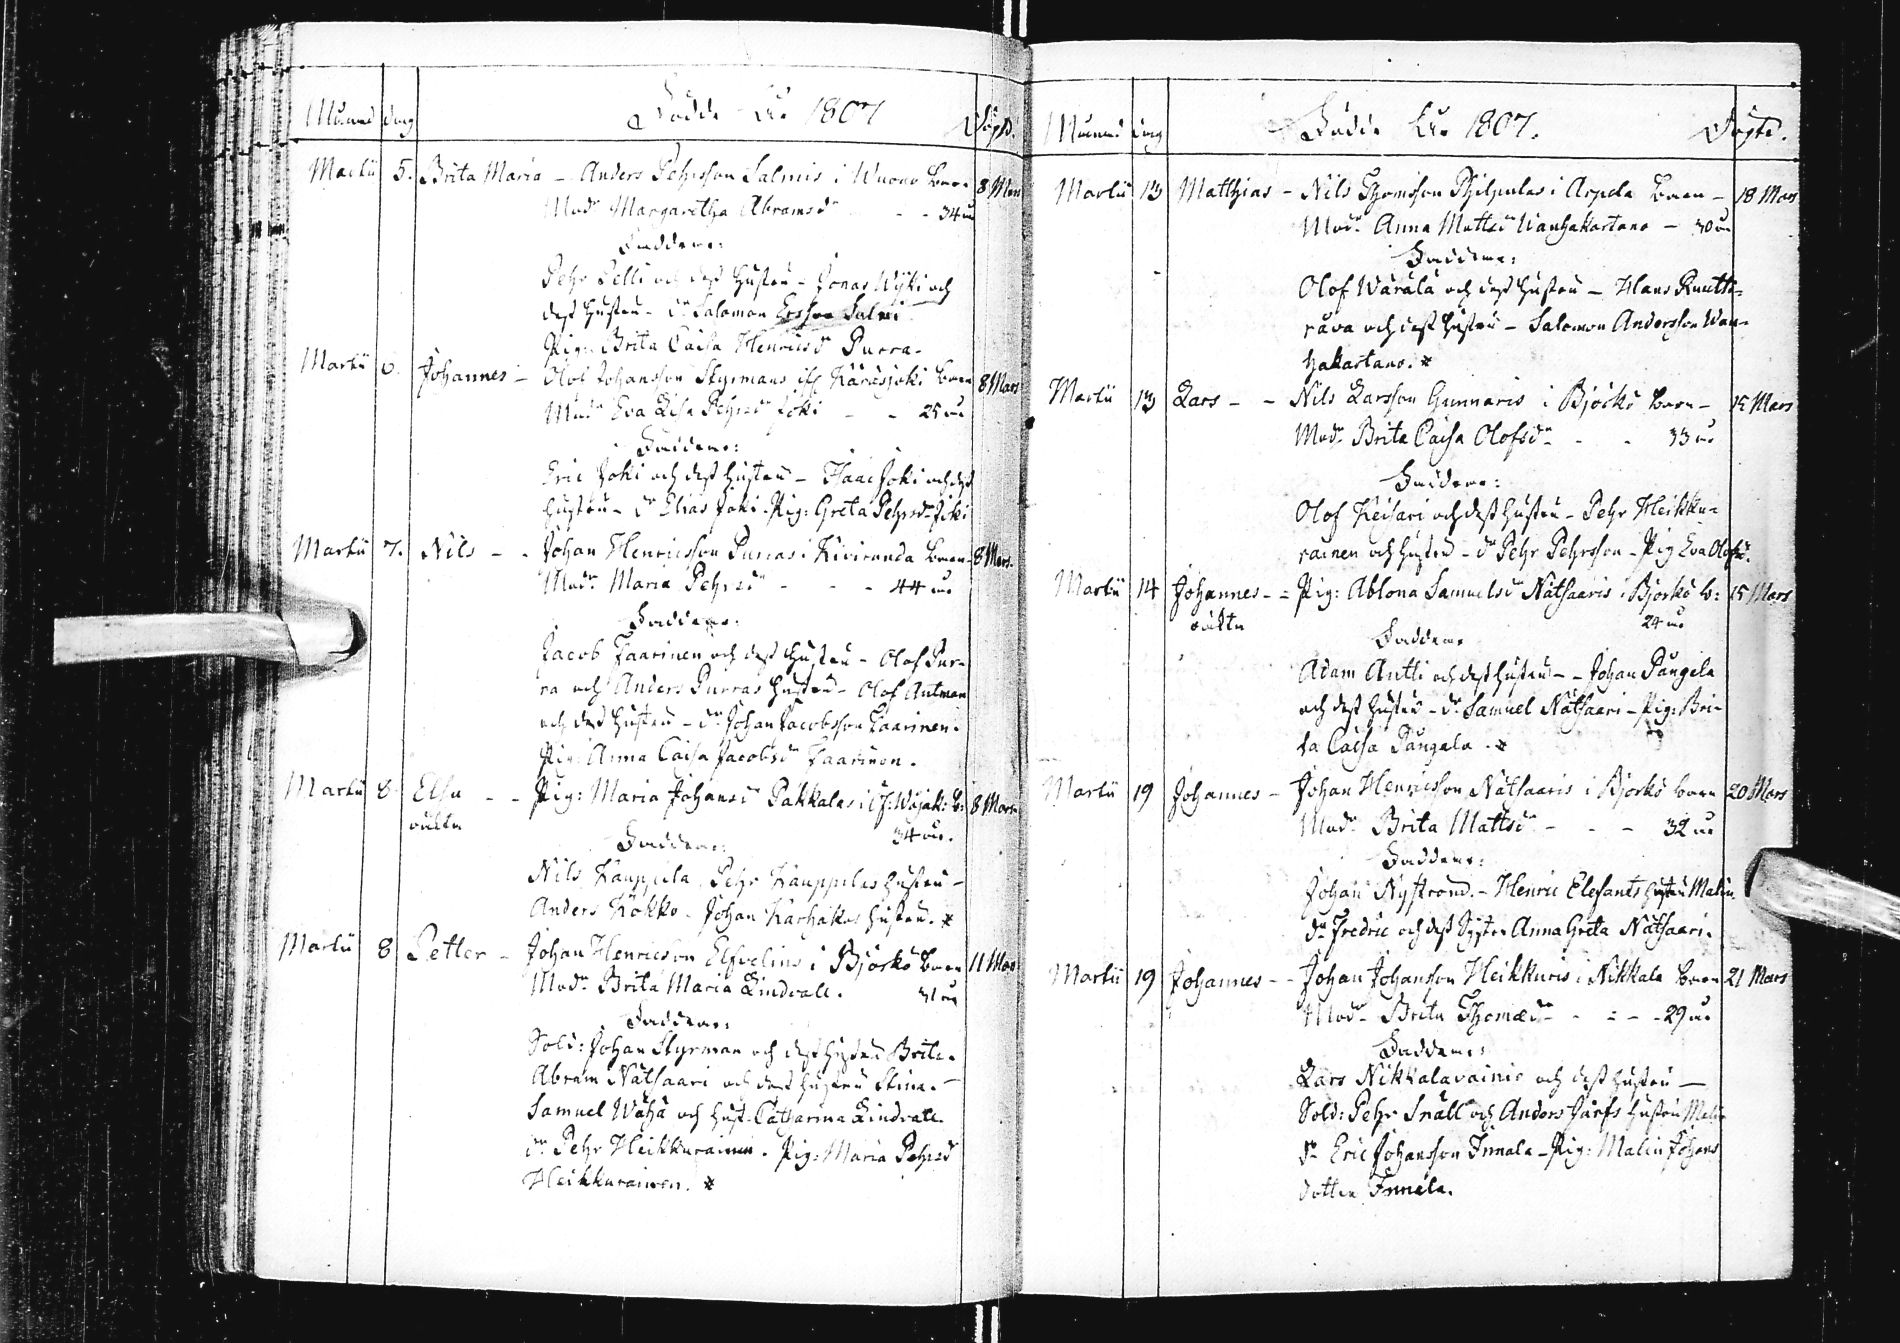 Månad dag Födde År 1807 Döpte.
Martii 5. Brita Maria - Anders Pehrsson Salmis i Wuono barn 8 Mars
Modr Margaretha Abramsdr - - 34 år
Faddrar:
Pehr Pelli och dess hustru - Jonas Wÿki och
dess hustru - dr Salomon Ersson Salmi
Pig: Brita Caisa Henricsdr Purra.
Martii 6. Johannes - Olof Johansson Styrmans i Karasjoki barn 8 Mars
Modr Eva Lisa Pehrsdr Joki - - 25 år
Faddrar:
Eric Joki och dess hustru - Isaac Joki och dess
hustru - dr Elias Joki. Pig: Greta Pehrsdr Joki
Martii 7. Nils - - Johan Henricsson Purras i Kiviranda barn 8 Mars.
Modr Maria Pehrsdr - - - 44 år
Faddrar:
Jacob Kaarinen och dess hustru - Olof Pur-
ra och Anders Purras hustru - Olof Antman
och dess hustru - dr Johan Jacobsson Kaarinen.
Pig: Anna Caisa Jacobsdr Kaarinen.
Martii 8 Elsa - - Pig: Maria Johansdr Pakkalas i b: 8 Mars
oäkta 34 år.
Faddrar:
Nils Kauppila. Pehr Kauppilas hustru -
Anders Kokko. Johan Karhakas hustru. *
Martii 8 Petter - Johan Henricson Elfvelius i Björkö barn 11 Mars
Modr Brita Maria Lindvall. 31 år
Faddrar:
Sold: Johan Styrman och dess hustru Brita.
Abram Nätsaari och dess hustru Stina. -
Samuel Wähä och hust. Catharina Lindvall.
dr Pehr Heikkurainen. Pig: Maria Pehrsdr
Heikkurainen. *
Månad dag Födde År 1807. Döpte.
Martii 13 Matthias - Nils Thomsson Philpulas i Arpela barn - 18 Mars
Modr Anna Mattsdr Wanhakartano - 30 år
Faddrar:
Olof Wärälä och dess hustru - Hans Knutti-
räva och dess hustru - Salomon Andersson Wan-
hakartano. *
Martii 13 Lars - - Nils Larsson Gunnaris i Björkö barn - 15 Mars
Modr Brita Caisa Olofsdr - - 33 år
Faddrar:
Olof Keisari och dess hustru - Pehr Heikku-
rainen och hustru - dr Pehr Pehrsson - Pig Eva Olofsdr.
Martii 14 Johannes - - Pig: Ablona Samuelsdr Nätsaaris i Björkö b: 15 Mars
oäkta 24 år
Faddrar
Adam Antti och dess hustru - - Johan Pangela
och dess hustru - dr Samuel Nätsaari - Pig: Bri-
ta Caisa Pangala. *
Martii 19 Johannes - Johan Henricsson Nätsaaris i Björkö barn 20 Mars
Modr Brita Mattsdr - - - 32 år
Faddrar:
Johan Nyström. - Henric Elefants hustru Malin.
dr Fredric och dess Syster Anna Greta Nätsaari.
Martii 19 Johannes - - Johan Johansson Heikkuris i Nikkala barn 21 Mars
Modr Brita Thomædr - - - 29 år
Faddrar:
Lars Nikkalavainio och dess hustru -
Sold: Pehr Snäll och Anders Järfs hustru Malin
dr Eric Johansson Innala - Pig: Malin Johans
dotter Innala.